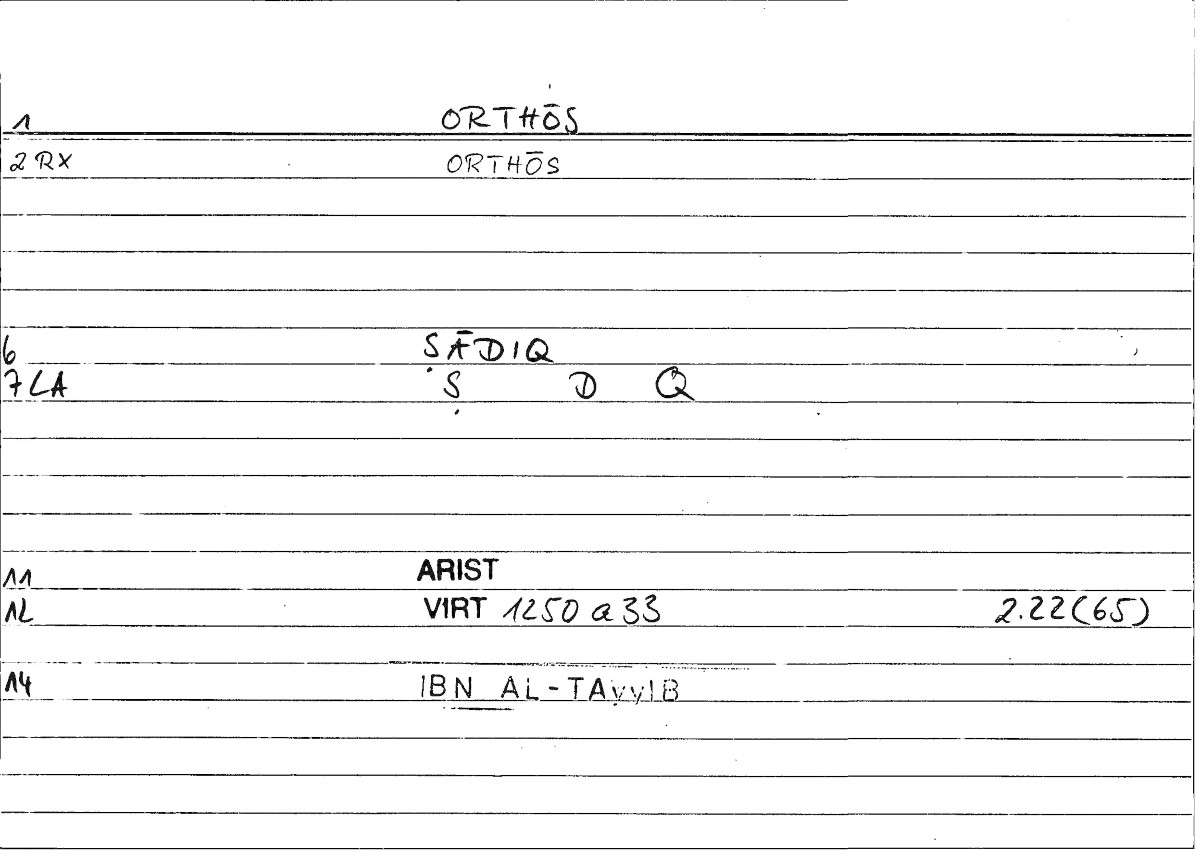 1 ORTHŌS
2 RX ORTHŌS
6 ṢĀDIQ
7 LA Ṣ D Q
11 ARIST
12 VIRT 1250 a 33 2.22(65)
14 IBN AL-ṬAyyIB